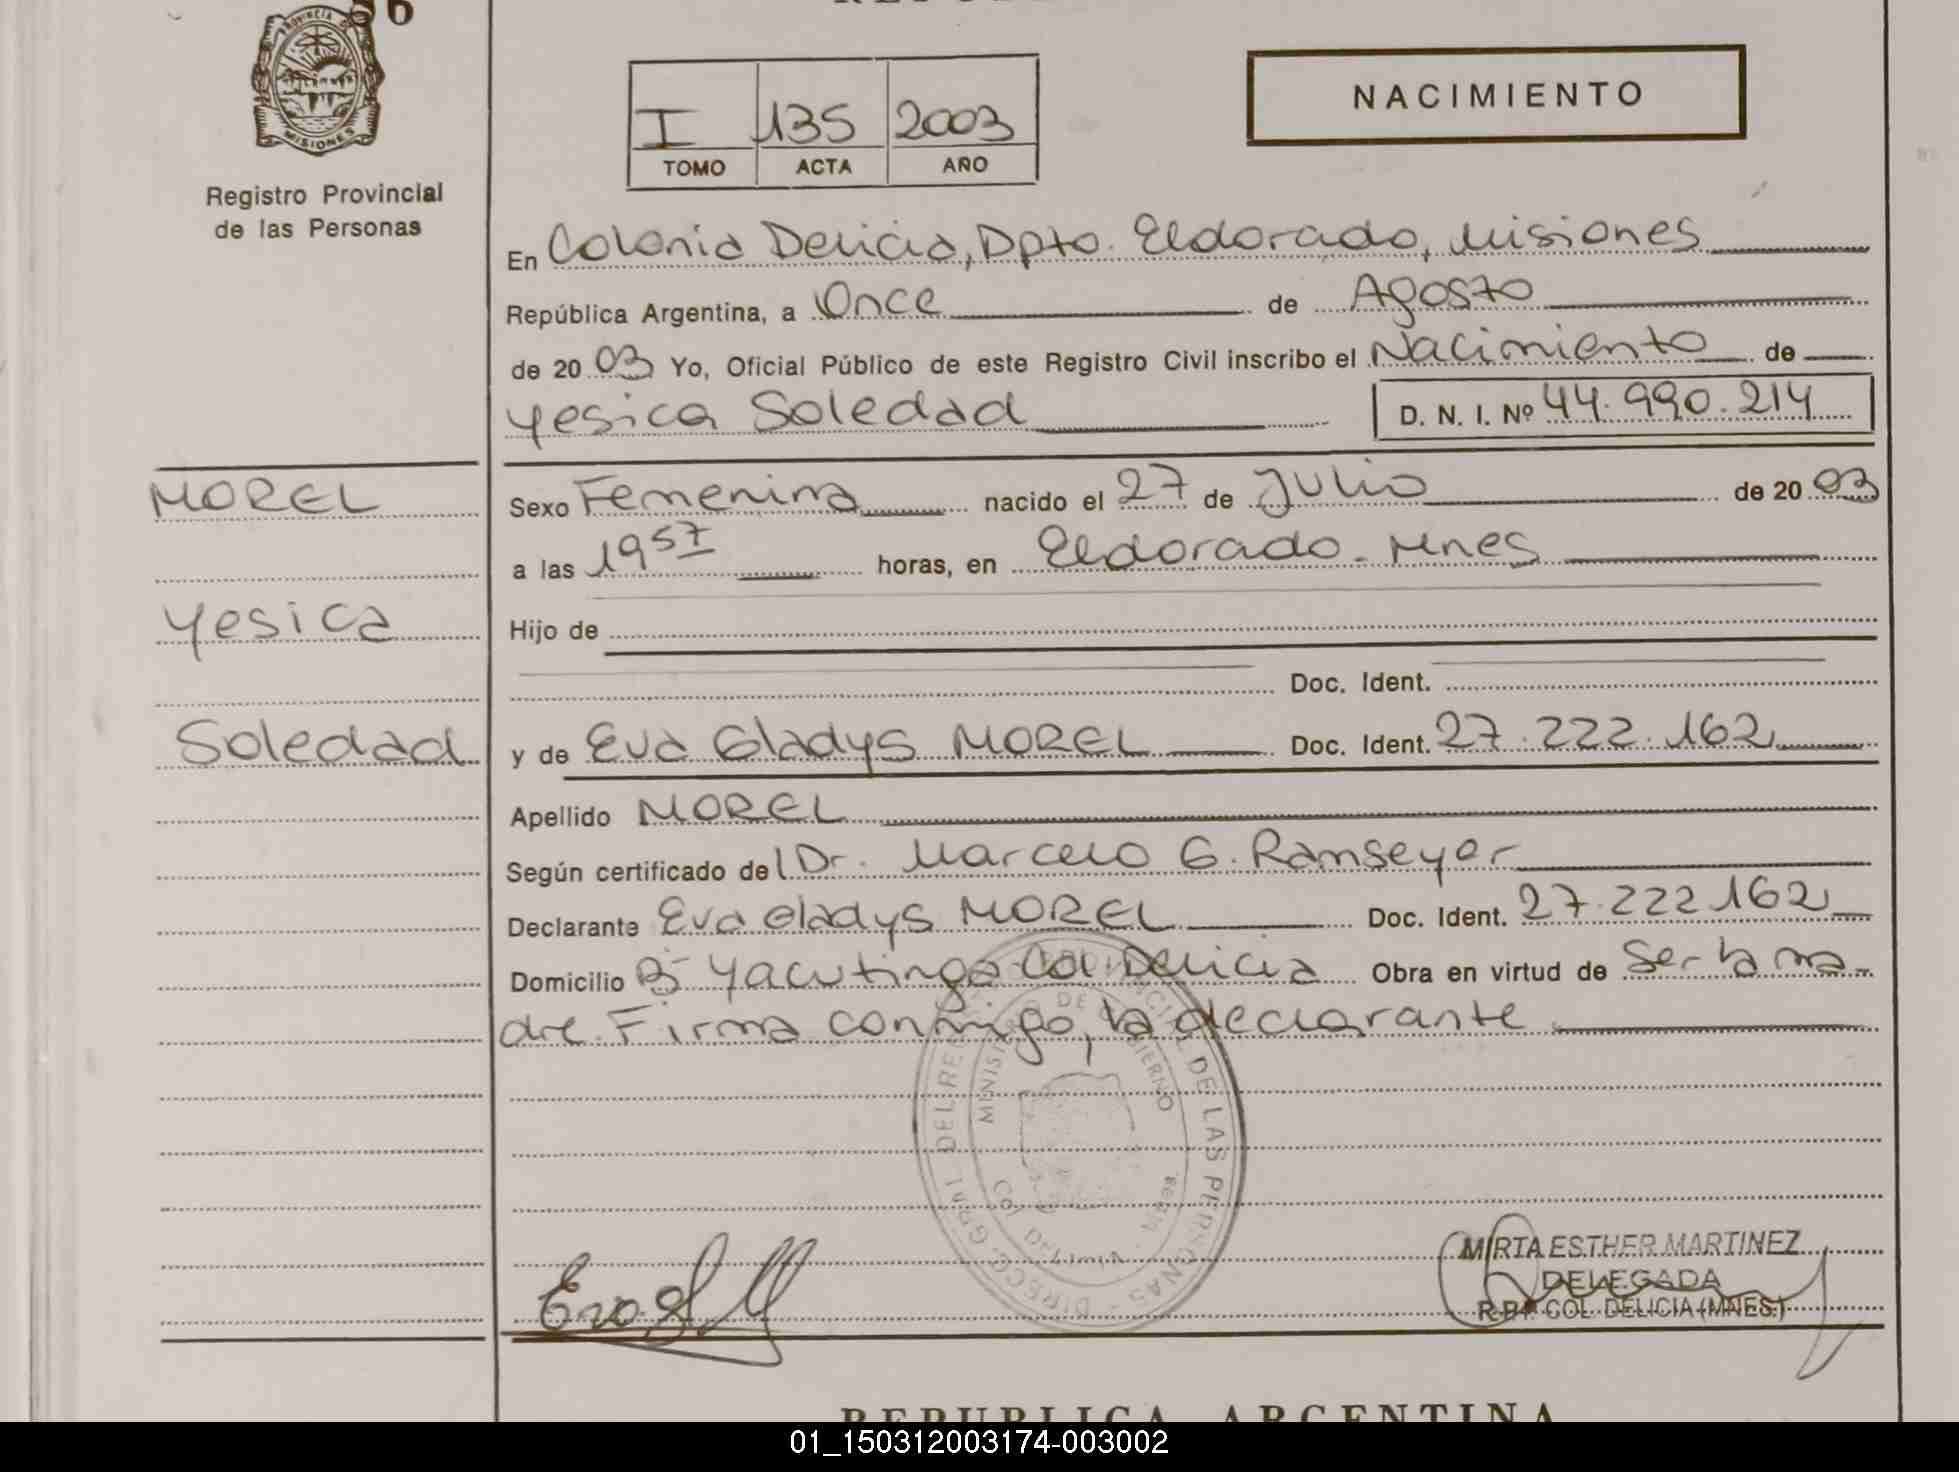 56
PROVINCIA DE
MISIONES
Registro Provincial
de las Personas
I 135 2003
TOMO ACTA AÑO
NACIMIENTO
En Colonia Delicia, Dpto. Eldorado, Misiones
República Argentina, a Once de Agosto
de 20 03 Yo, Oficial Público de este Registro Civil inscribo el Nacimiento de
Yesica Soledad D. N. I. Nº 44.990.214
MOREL Sexo Femenina nacido el 27 de Julio de 20 03
a las 19 57 horas, en Eldorado - Mnes
Yesica Hijo de
Doc. Ident.
Soledad y de Eva Gladys MOREL Doc. Ident. 27.222.162
Apellido MOREL
Según certificado del Dr. Marcelo G. Ramseyer
Declarante Eva Gladys MOREL Doc. Ident. 27.222.162
Domicilio Bº Yacutinga Col Delicia Obra en virtud de Ser la ma-
dre. Firma conmigo, la declarante
MINISTERIO DE GOBIERNO
DE LAS PERSONAS
MIRTA ESTHER MARTINEZ
DELEGADA
COL. DELICIA (MNES.)
REPUBLICA ARGENTINA
01_150312003174-003002